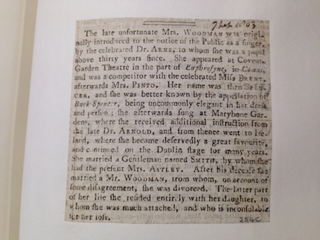 The late unfortunate Mrs. WOODMAN was origi-
nally introduced to the notice of the Public as a singer,
by the celebrated Dr. ARNE, to whom she was a pupil
above thirty years since. She appeared at Covent-
Garden Theatre in the part of
and was a competitor with the celebrated Miss BRENT,
afterwards Mrs. PINTO. Her name was then SPEN-
CER, and she was better known by the appellation of
Buck Spencer, being uncommonly elegant in her dress
and person; she afterwards sung at Marybone Gar-
dens, where she received additional instruction from
the late Dr. ARNOLD, and from thence went to Ire-
land, where she became deservedly a great favourite,
and continued on the Dublin stage for many years.
She married a Gentleman named SMITH, by whom she
had the present Mrs. ASTLEY. After his decease she
married a Mr. WOODMAN, from whom, on account of
some disagreement, she was divorced. The latter part
of her life she resided entirely with her daughter, to
whom she was much attached, and who is inconsolable
for her loss.